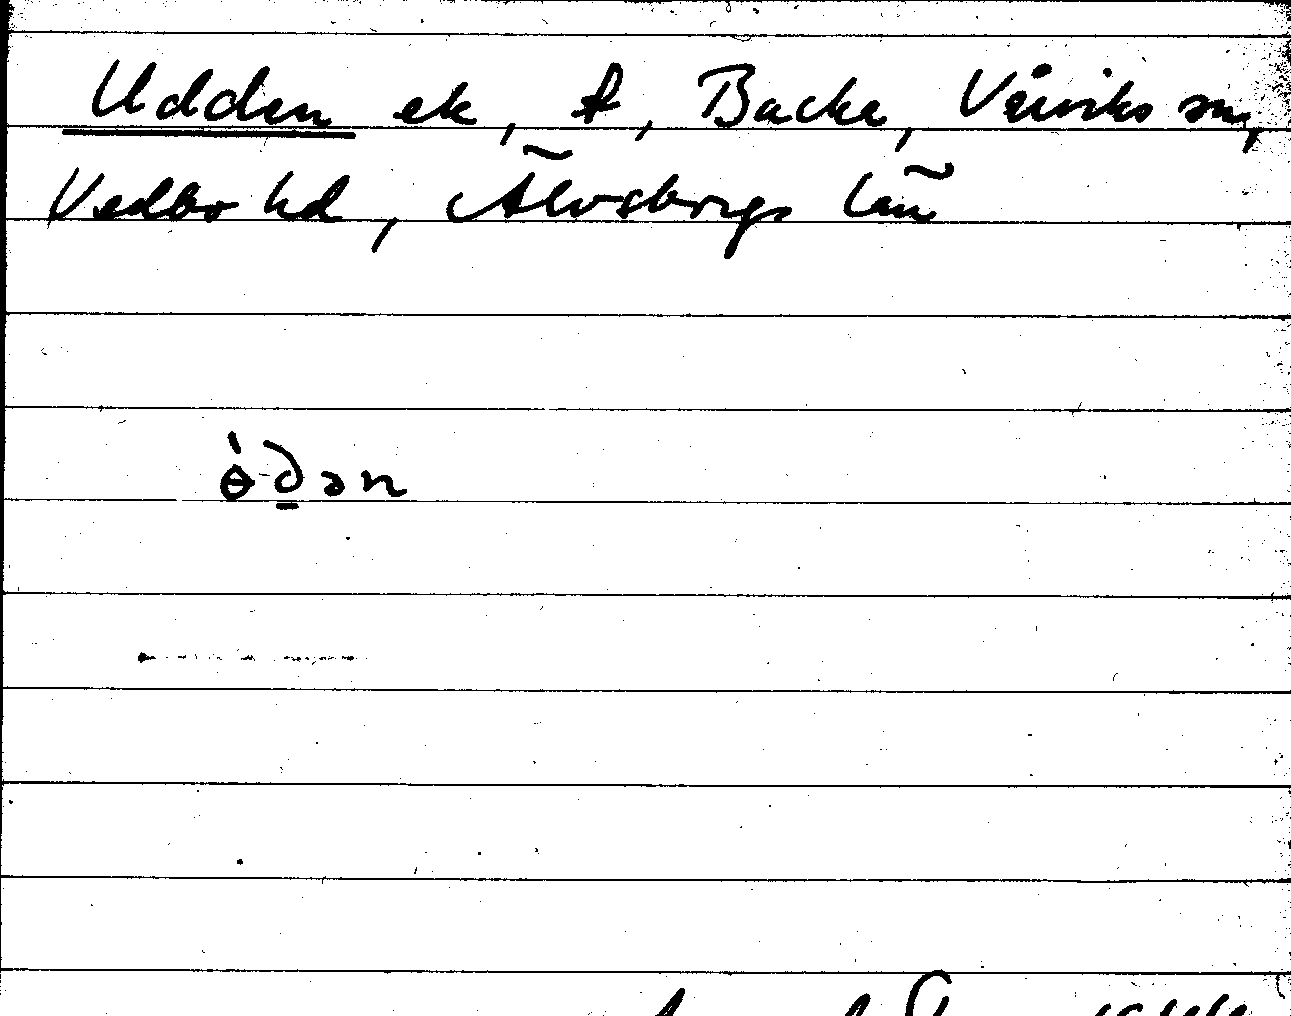 Udden ek, f, Backe, Vårviks sn,
Vedbo hd, Älvsborgs län
ѳ̀d̲ən